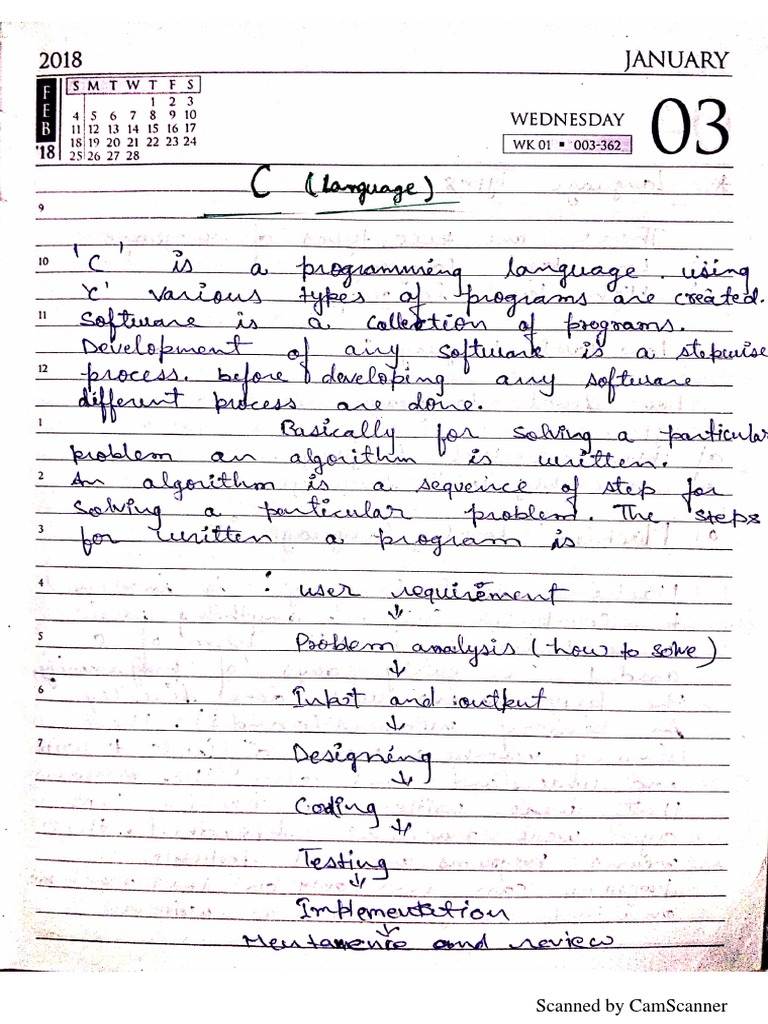 2018 JANUARY
FEB '18
S M T W T F S
1 2 3
4 5 6 7 8 9 10
11 12 13 14 15 16 17
18 19 20 21 22 23 24
25 26 27 28
WEDNESDAY 03
WK 01 ▪ 003-362
C (language)
9
10 'C' is a programming language. using
'C' various types of programs are created.
11 Software is a collection of programs.
Development of any software is a stepwise
12 process. before developing any software
different process are done.
1 Basically for solving a particular
problem an algorithm is written.
2 An algorithm is a sequence of step for
solving a particular problem. The steps
3 for written a program is
4 : user requirement
↓
5 Problem analysis (how to solve)
↓
6 Input and output
↓
7 Designing
↓
Coding
↓
Testing
↓
Implementation
↓
and review
Scanned by CamScanner